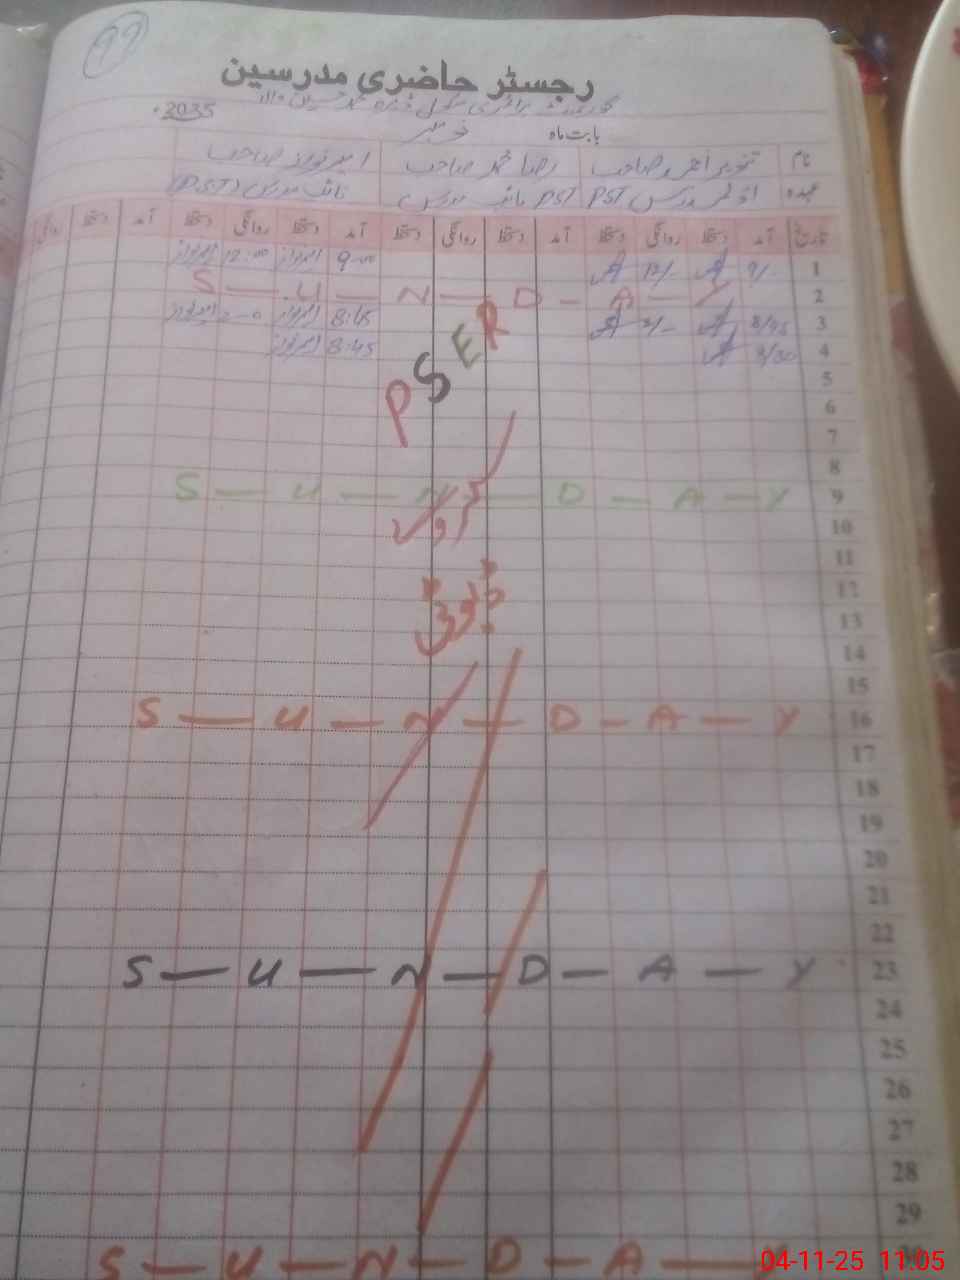 99
رجسٹر حاضری مدرسین
گورنمنٹ پرائمری سکول ڈیرہ محمد حسین والا 2035
بابت ماہ نومبر
نام تنویر احمد صاحب رضا محمد صاحب امیر نواز صاحب
عہدہ مدرس PST نائب مدرس PST نائب مدرس (PST)
تاریخ آمد دستخط روانگی دستخط آمد دستخط روانگی دستخط آمد دستخط روانگی دستخط آمد دستخط روانگی
1 9/- 12/- 9-00 امیرنواز 12:00 امیرنواز
2 S — U — N — D — A — Y
3 8/45 2/- 8:45 امیرنواز 2-0 امیرنواز
4 8/30 8:45 امیرنواز
PSER
5
6
7
8
9 S — U — N — D — A — Y
10
11
12
13
14
15
16 S — U — N — D — A — Y
17
18
19
20
21
22
23 S — U — N — D — A — Y
24
25
26
27
28
29
30 S — U — N — D — A — Y
04-11-25 11:05